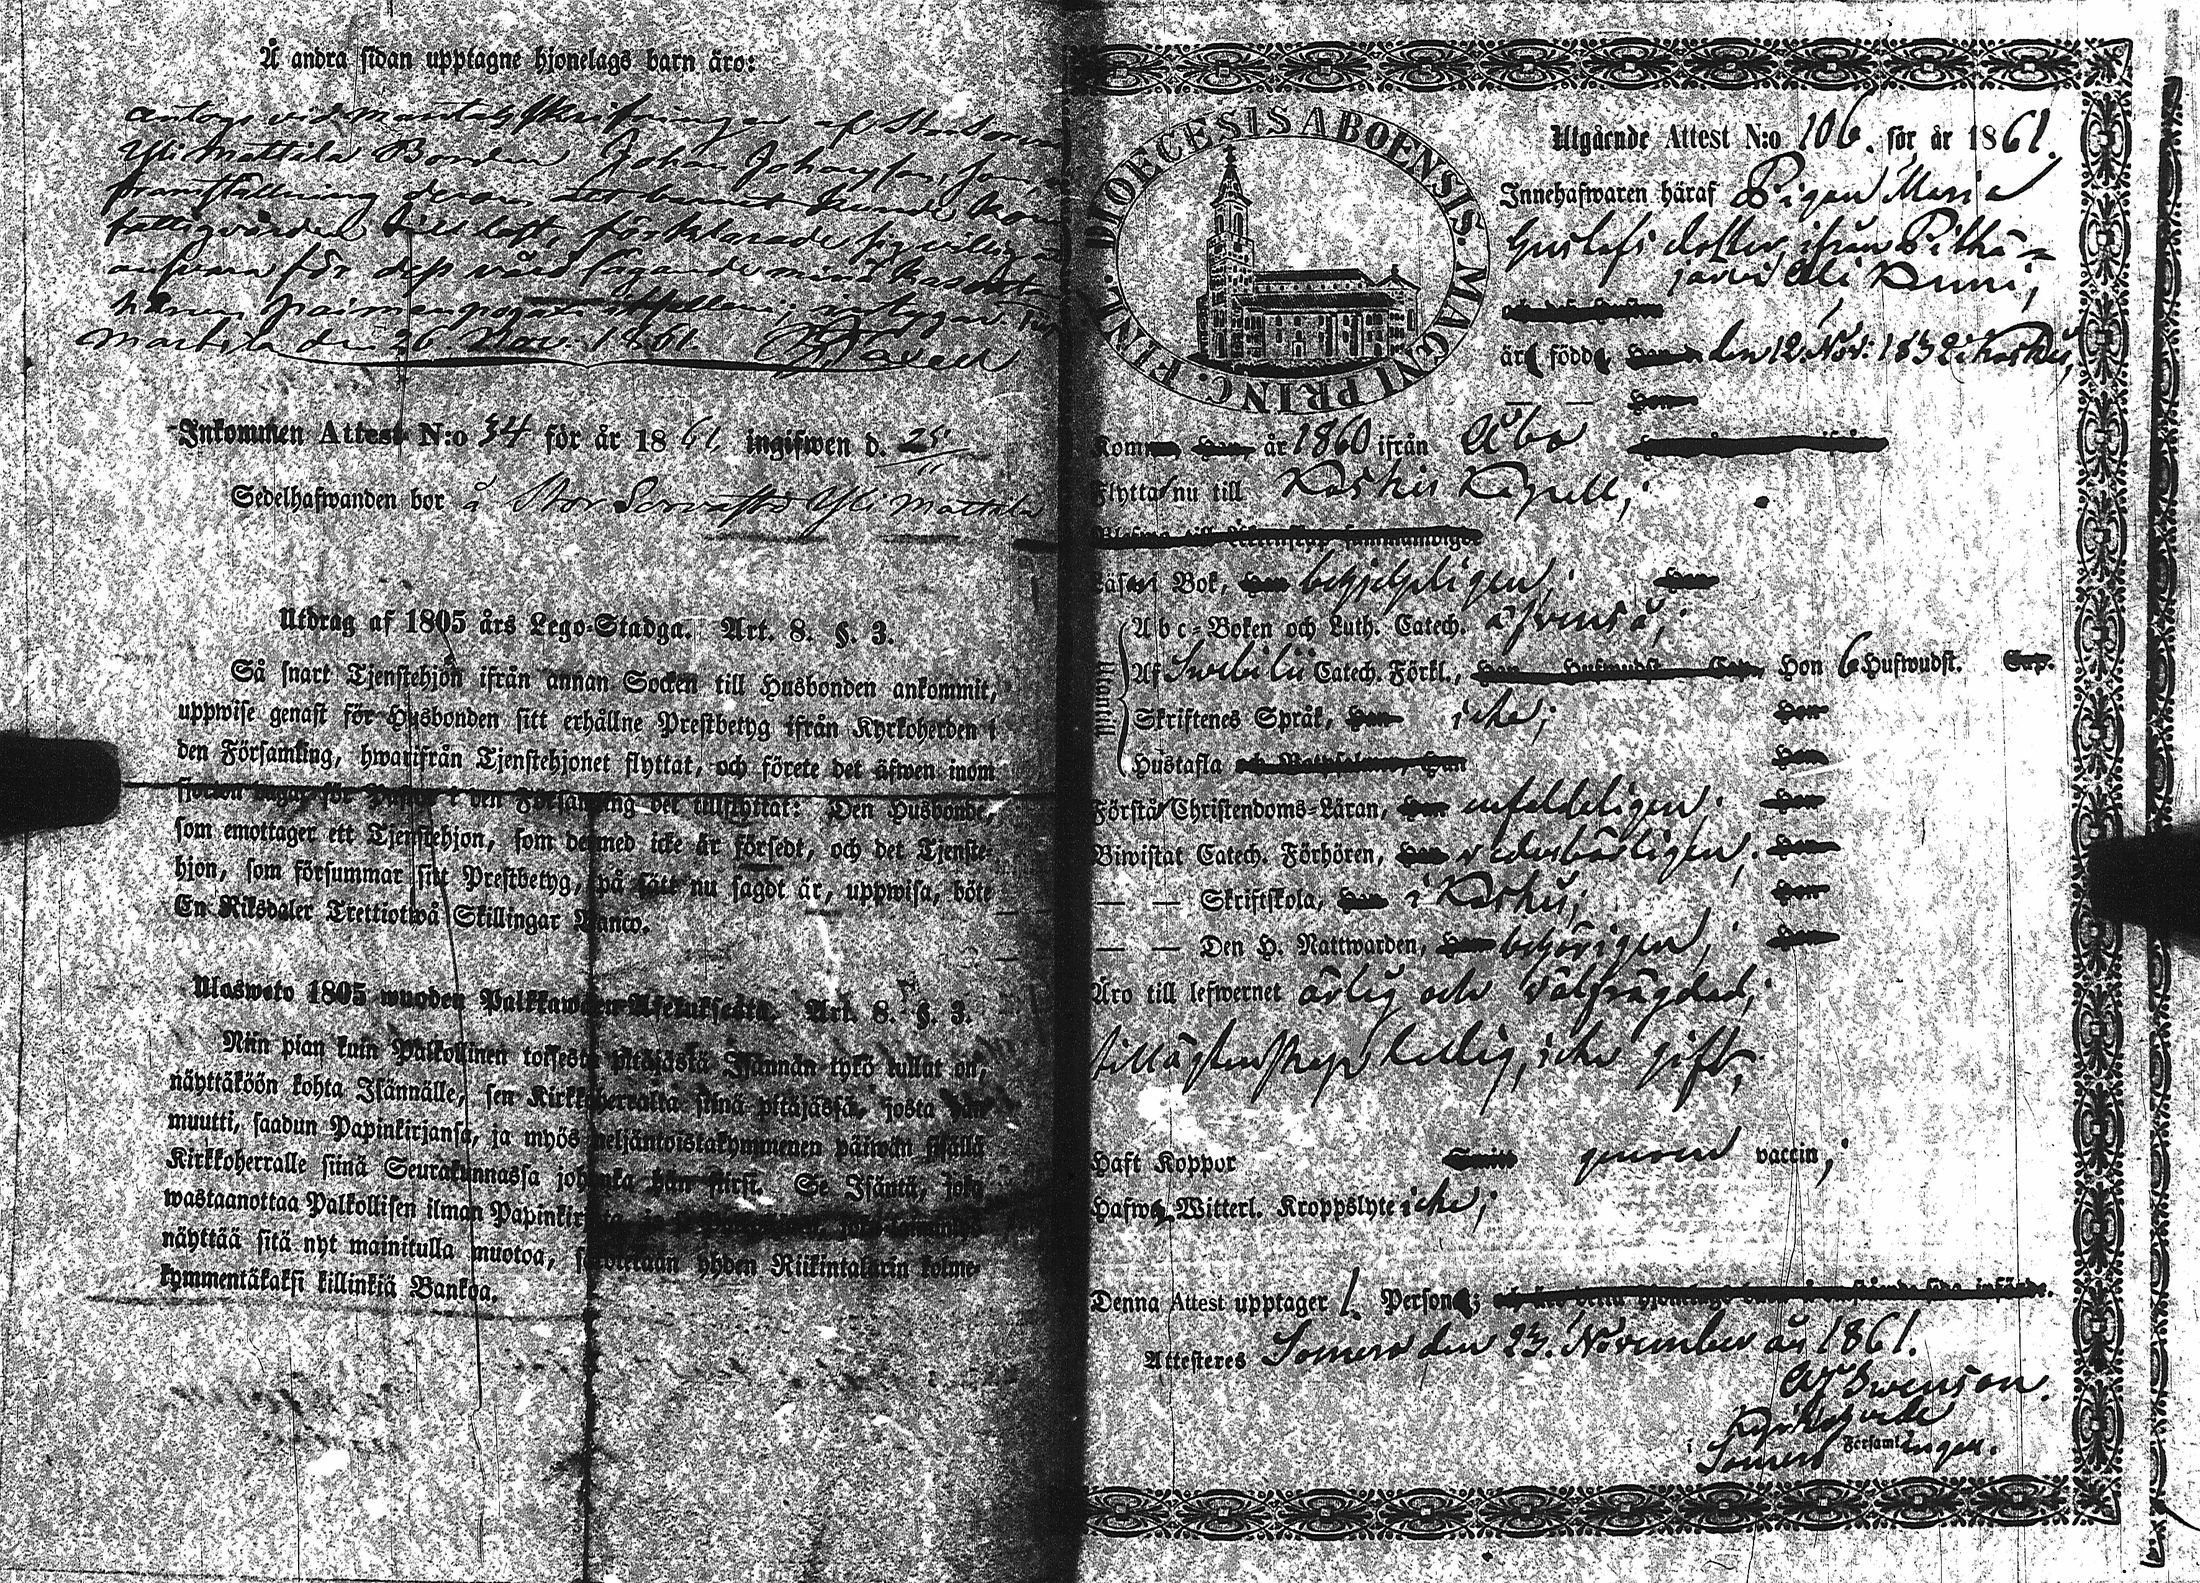 Å andra sidan upptagne hjonelags barn äro:
antogs vid Mantalsskrifningen af
Yli Mattila Bonden Johan Johansson, som,
framställning derom att barnet kunde
fattigvården till last, förklarade sig villig
ansvara för dess vård
Martila den 26 Nov. 1861.
Inkommen Attest N:o 34 för år 1861, ingifwen d. 25/11
Sedelhafwanden bor å Yli Mattila
Utdrag af 1805 års Lego-Stadga. Art. 8. §. 3.
Så snart Tjenstehjon ifrån annan Socken till Husbonden ankommit,
uppwise genast för Husbonden sitt erhållne Prestbetyg ifrån Kyrkoherden i
den Församling, hwarifrån Tjenstehjonet flyttat, och förete det äfwen inom
fjorton dagar för Pastor i den Församling det tillflyttat: Den Husbonde,
som emottager ett Tjenstehjon, som dermed icke är försedt, och det Tjenste-
hjon, som försummar sitt Prestbetyg, på sätt nu sagdt är, uppwisa, böte
En Riksdaler Trettiotwå Skillingar Banco.
Ulosweto 1805 wuoden Palkkawäen-Asetuksesta. Art. 8. §. 3.
Niin pian kuin Palkollinen toisesta pitäjästä Isännän tykö tullut on,
näyttäköön kohta Isännälle, sen Kirkkoherralta siinä pitäjässä, josta hän
muutti, saadun Papinkirjansa, ja myös neljäntoistakymmenen päiwän sisällä
Kirkkoherralle siinä Seurakunnassa johonka hän siirsi. Se Isäntä, joka
wastaanottaa Palkollisen ilman Papinkirjata,
näyttää sitä nyt mainitulla muotoa, sakotetaan yhden Riikintalarin kolme-
kymmentäkaksi killinkiä Bankoa.
DIOECESIS ABOENSIS. MAGNI PRINC. FINL.
Utgående Attest N:o 106. för år 1861.
Innehafwaren häraf Pigan Maria
Gustafs dotter, ifrån Pitkä=
järvi Ali Runi;
är född, den 12 Nov: 1832 i Koskis,
Kom år 1860 ifrån Åbo
Flytta nu till Koskis Kapell;
Läser i Bok, behjelpligen;
Utantill
Abc-Boken och Luth. Catech. äfvenså;
Af Svebilii Catech. Förkl., Hon 6 Hufwudst.
Skriftenes Språk, icke;
Hustafla
Förstår Christendoms-Läran, enfaldeligen;
Biwistat Catech. Förhören, vederbörligen;
— — Skriftskola, i Koskis;
— — Den H. Nattwarden, behörigen;
Äro till lefwernet ärlig och välfrägdad;
till ägtenskap ledig, icke gift;
Haft Koppor genom vaccin;
Hafwa Witterl. Kroppslyte icke;
Denna Attest upptager 1. Person;
Attesteres Somero den 23. November år 1861.
Swenson.
Kyrkoherde
i Somero Församlingen.